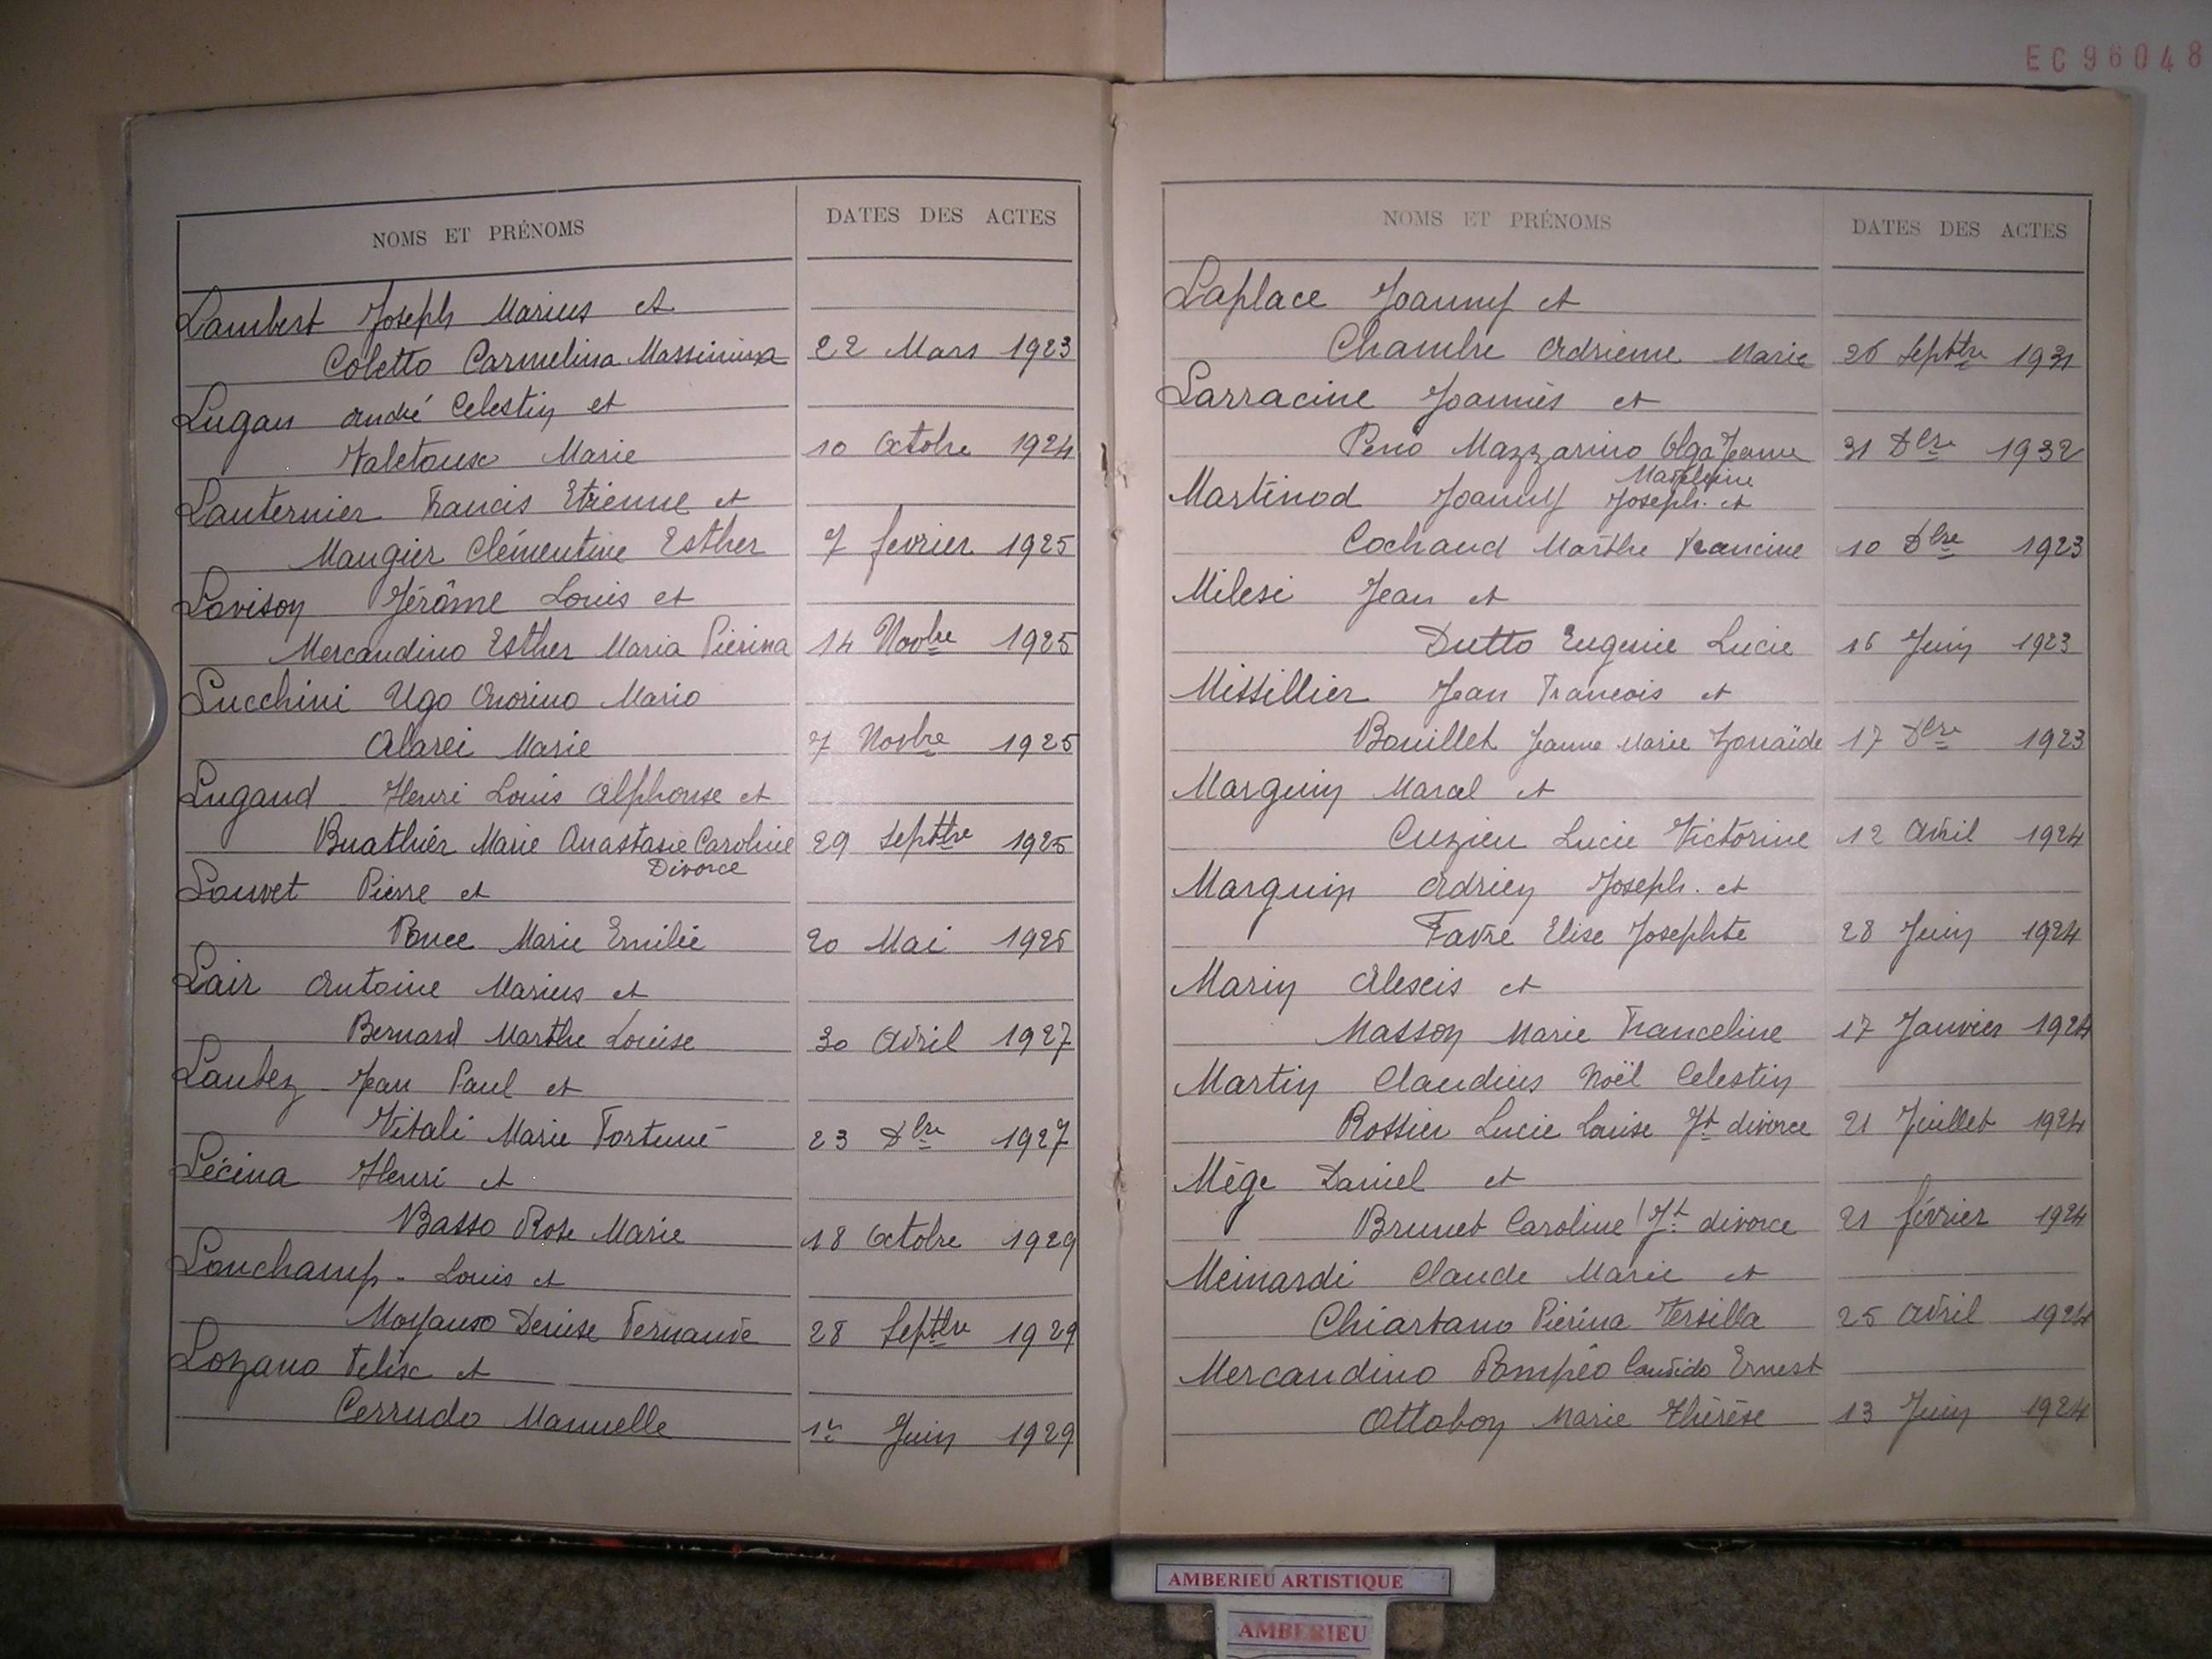 EC96048
NOMS ET PRÉNOMS DATES DES ACTES
Lambert Joseph Marius et
Coletto Carmelina Massimina 22 Mars 1923
Lugan André Celestin et
Valetoux Marie 10 Octobre 1924
Lanternier Francis Etienne et
Maugier Clémentine Esther 7 fevrier 1925
Lavison Jérâme Louis et
Mercandino Esther Maria Pierina 14 Novbre 1925
Lucchini Ugo Onorino Mario
Alarei Marie 7 Novbre 1925
Lugand Henri Louis Alphonse et
Buathier Marie Anastasie Caroline 29 Septtre 1925
Divorce
Louvet Pierre et
Ponce Marie Emilie 20 Mai 1926
Lair Antoine Marius et
Bernard Marthe Louise 30 Avril 1927
Laubez Jean Paul et
Vitali Marie Fortuné 23 Dbre 1927
Lécina Henri et
Basso Rose Marie 18 Octobre 1929
Lonchamp - Louis et
Denise Fernande 28 Septtre 1929
Lozano Felix et
Cerrudo Manuelle 1er Juin 1929
NOMS ET PRÉNOMS DATES DES ACTES
Laplace Joanny et
Chambre Adrienne Marie 26 Septtre 1931
Larracine Joannès et
Peno Mazzarino Olga Jeanne 31 Dbre 1932
Madeleine
Martinod Joanny Joseph. et
Cochaud Marthe Francine 10 Dbre 1923
Milesi Jean et
Dutto Eugenie Lucie 16 Juin 1923
Missillier Jean Francois et
Bouillet Jeanne Marie Zonaïde 17 Dbre 1923
Marguin Marcel et
Cuzieu Lucie Victorine 12 Avril 1924
Marguin Adrien Joseph. et
Favre Elise Josephte 28 Juin 1924
Marin Alexis et
Masson Marie Franceline 17 Janvier 1924
Martin Claudius Noël Celestin
Rossier Lucie Louise Jt divorce 21 Juillet 1924
Mège Daniel et
Brunet Caroline Jt divorce 21 février 1924
Meinardi Claude Marie et
Chiartano Pierina Tersilla 25 Avril 1924
Mercandino Pompéo Candido Ernest
Ottobon Marie Thérèse 13 Juin 1924
AMBERIEU ARTISTIQUE
AMBERIEU